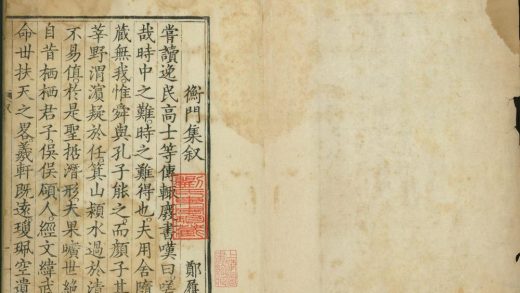 衡門集叙
鄭履
嘗讀逸民高士等傳輒廢書嘆曰嗟
哉時中之難時之難得也夫用舍隨
蔵無我惟舜與孔子能之而顏子其
莘野渭濱疑於任箕山潁水過於清
不易慎於是聖哲潛形夫果曠世絶
自昔栖栖君子俁俁碩人經文緯武
命世扶天之畧羲軒既遠瓊珮空遺